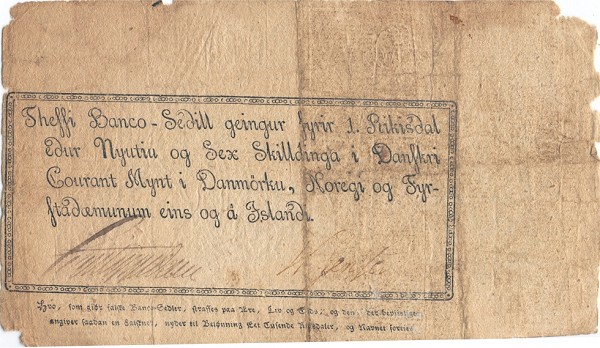 Theſſi Banco-Sedill geingur fyrir 1. Rikisdal
edur Nyutiu og Sex Skilldinga i Danſkri
Courant Mynt i Danmörku, Noregi og Fyr-
ſtadæmunum eins og â Islandi.
Hvo, ſom giør falſke Banco-Sedler, ſtraffes paa Ære, Liv og Gods, og den, det beviislig
angiver ſaadan en Falſkner, nyder til Belønning Eet Tuſende Rigsdaler, og Navnet forties.